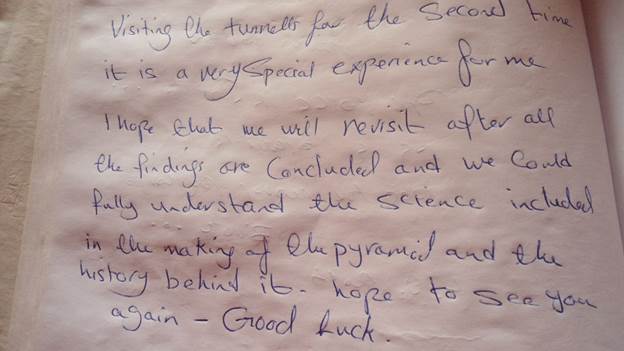 Visiting the tunnells for the second time
it is a very special experience for me
I hope that we will revisit after all
the findings are concluded and we could
fully understand the science included
in the making of the pyramid and the
history behind it. hope to see you
again – Good luck.